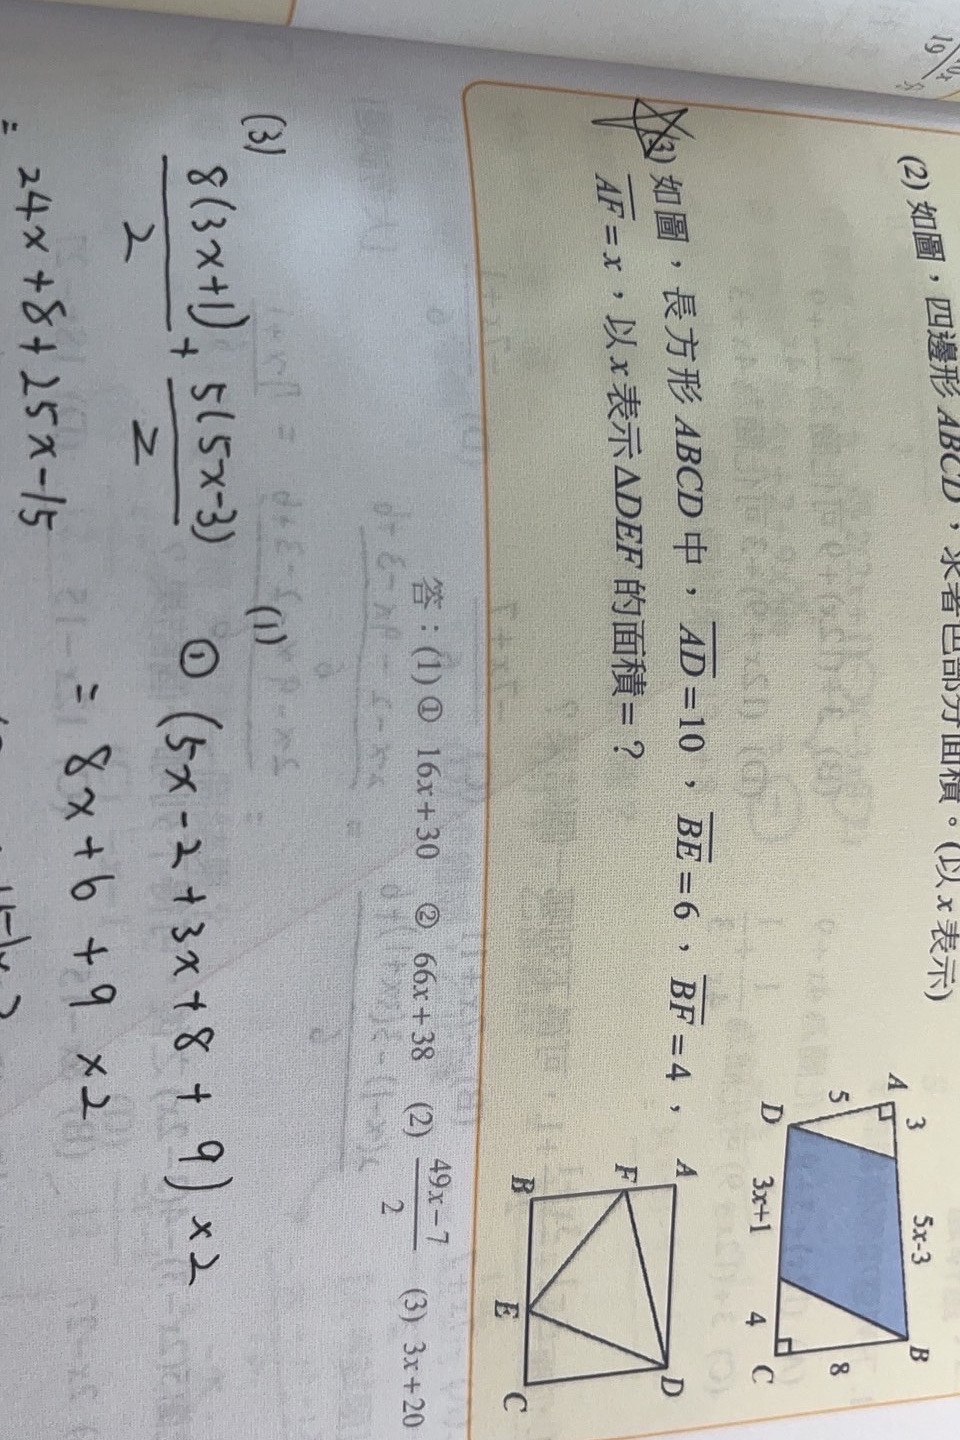 (2) 如圖，四邊形 ABCD，求著色部分面積。(以 x 表示)
A 3 5x-3 B
5 8
D 3x+1 4 C
(3) 如圖，長方形 ABCD 中，AD=10，BE=6，BF=4，
AF=x，以 x 表示 ΔDEF 的面積=？
A D
F
B E C
答：(1) ① 16x+30 ② 66x+38 (2) 49x-7/2 (3) 3x+20
(3) 8(3x+1)/2 + 5(5x-3)/2
= 24x+8+25x-15
(1)
① (5x-2+3x+8+9)x2
= 8x+6+9x2